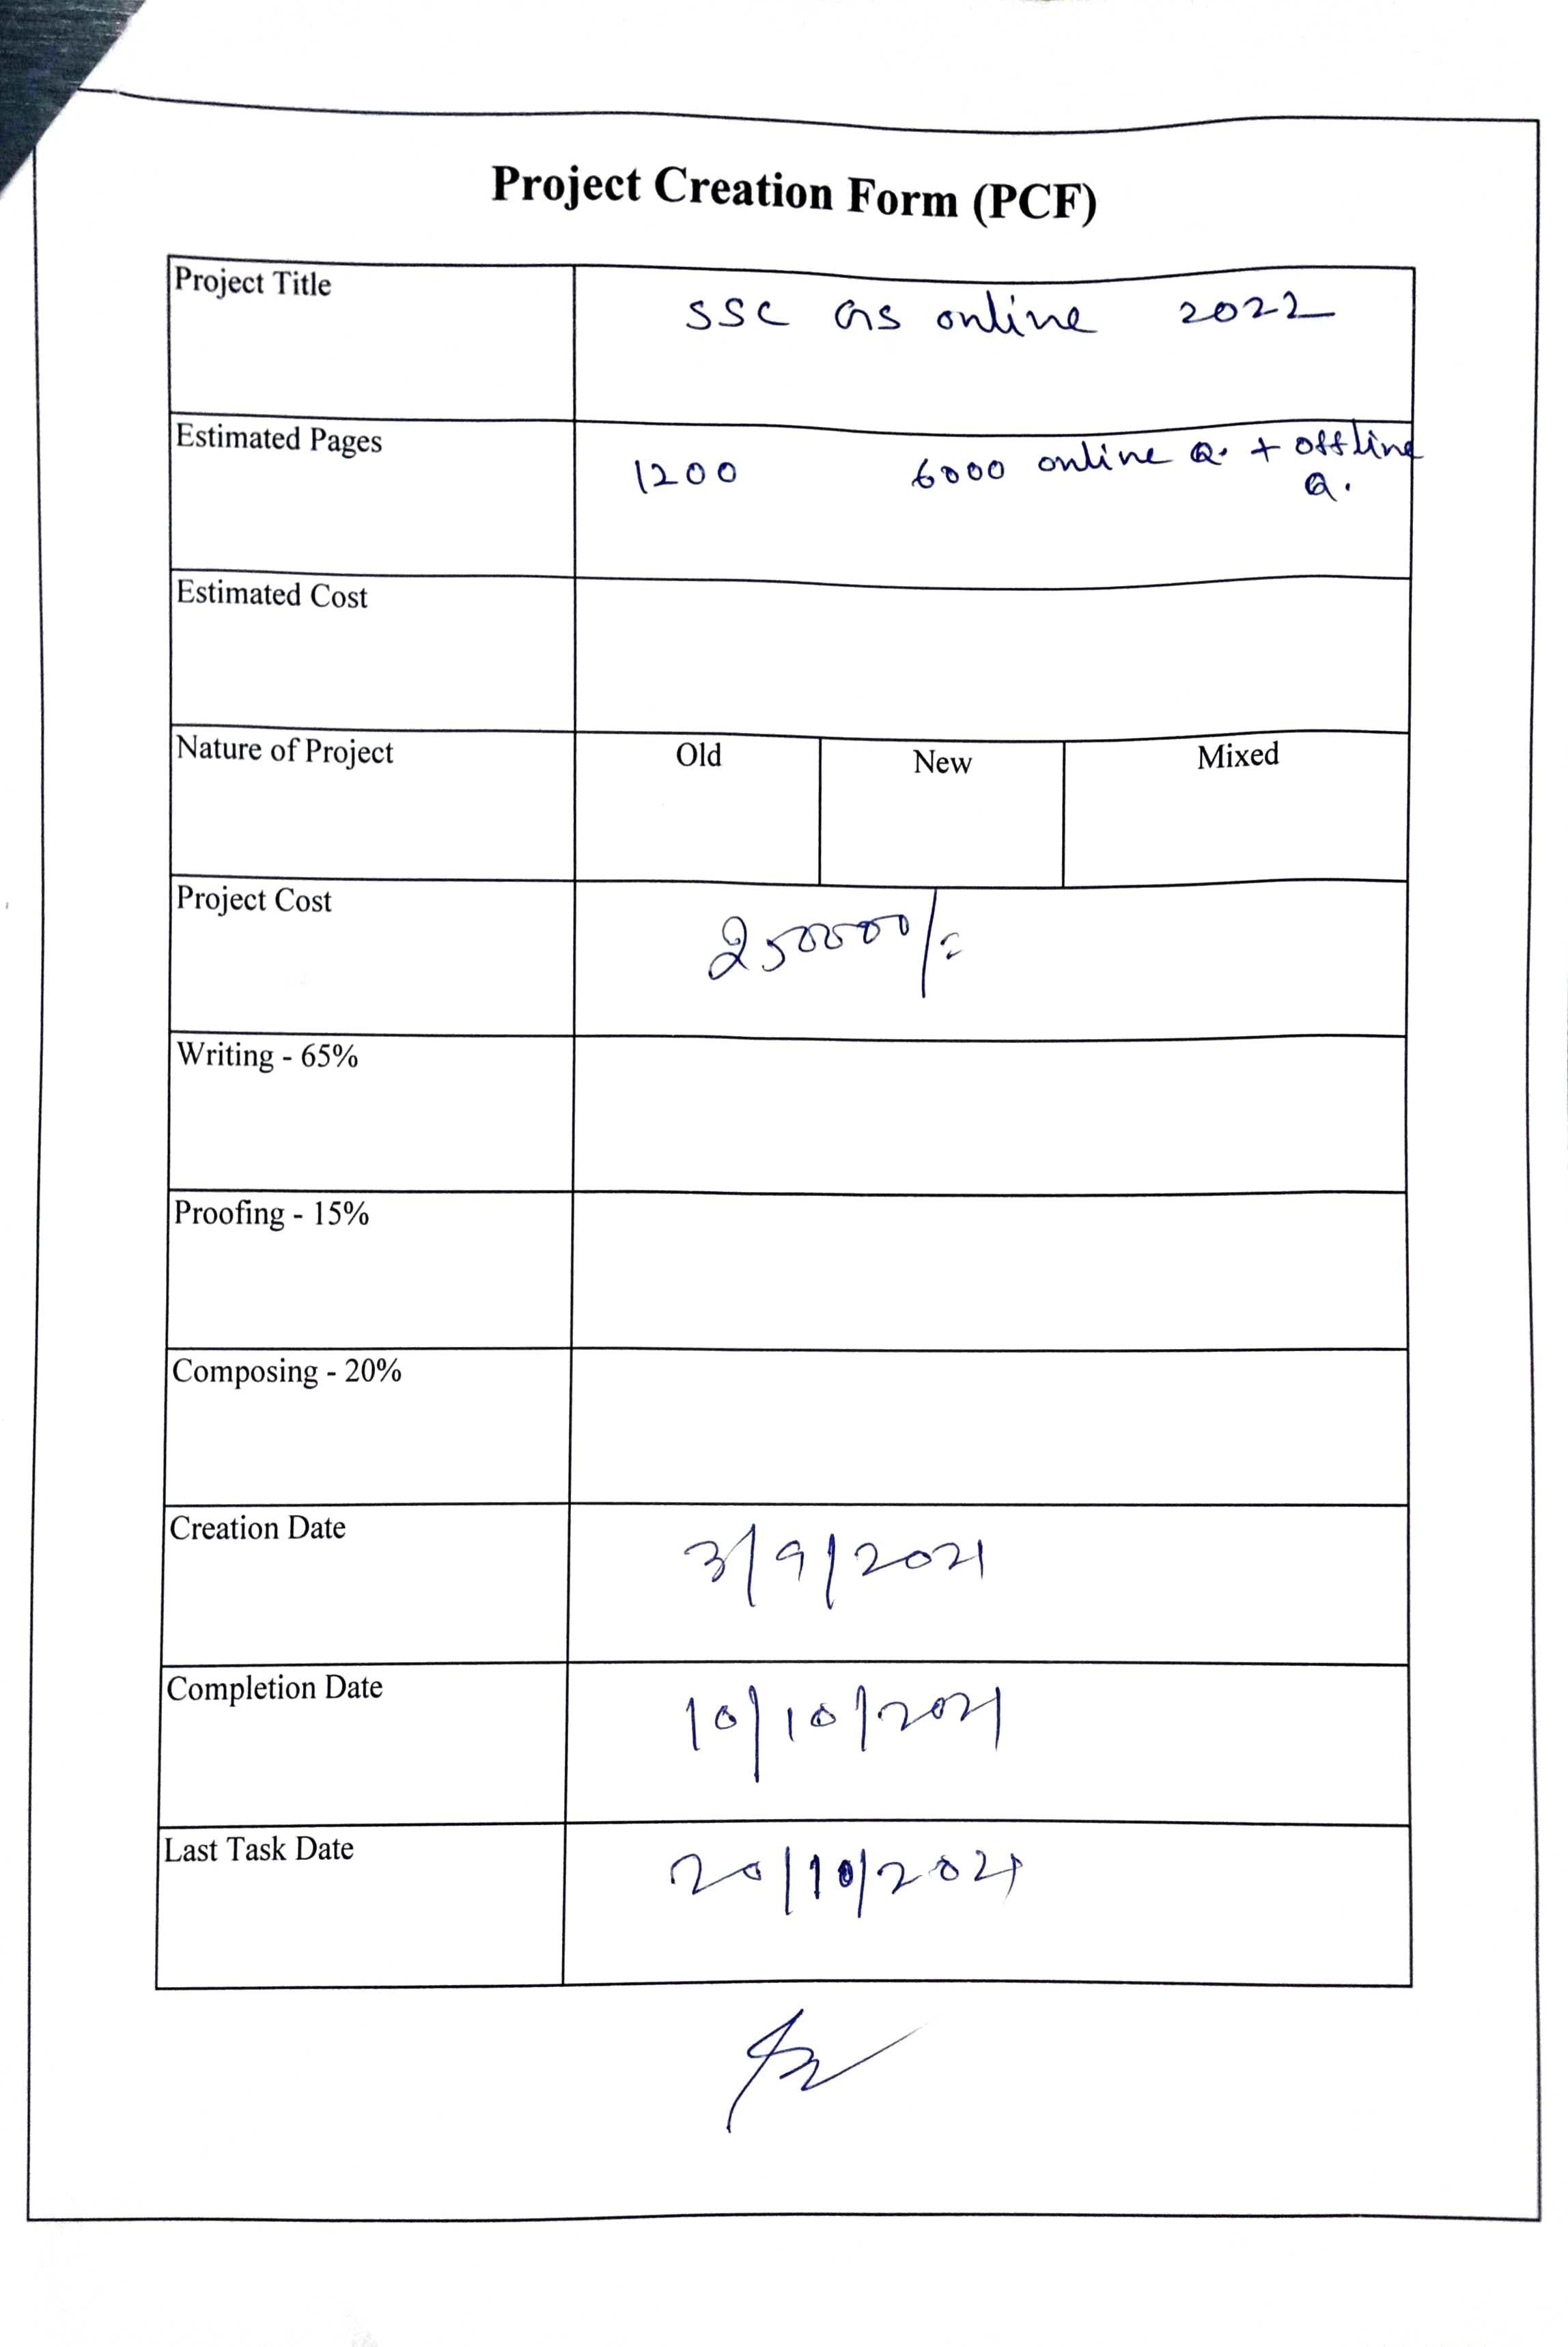 Project Creation Form (PCF)
Project Title
SSC GS online 2022
Estimated Pages
1200 6000 online Q. + offline
Q.
Estimated Cost
Nature of Project
Old New Mixed
Project Cost
250000/=
Writing - 65%
Proofing - 15%
Composing - 20%
Creation Date
3/9/2021
Completion Date
10/10/2021
Last Task Date
20/10/2021